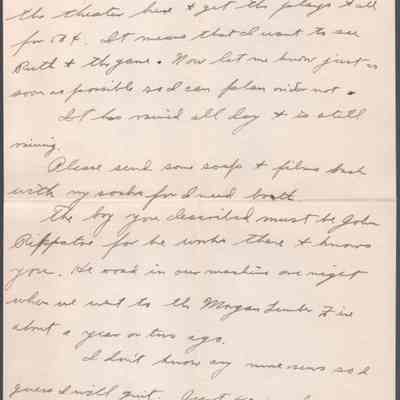 the theater here + get the plays + all
for 50¢. It means that I want to see
Ruth + the game. Now let me know just as
soon as possible so I can plan rides or not.
It has rained all day + is still
raining.
Please send some soap + films back
with my socks for I need both.
The boy you described must be John
for he works there + knows
you. He rode in our machine one night
when we went to the Morgan Lumber Fire
about a year or two ago.
I don't know any more news so I
guess I will quit.